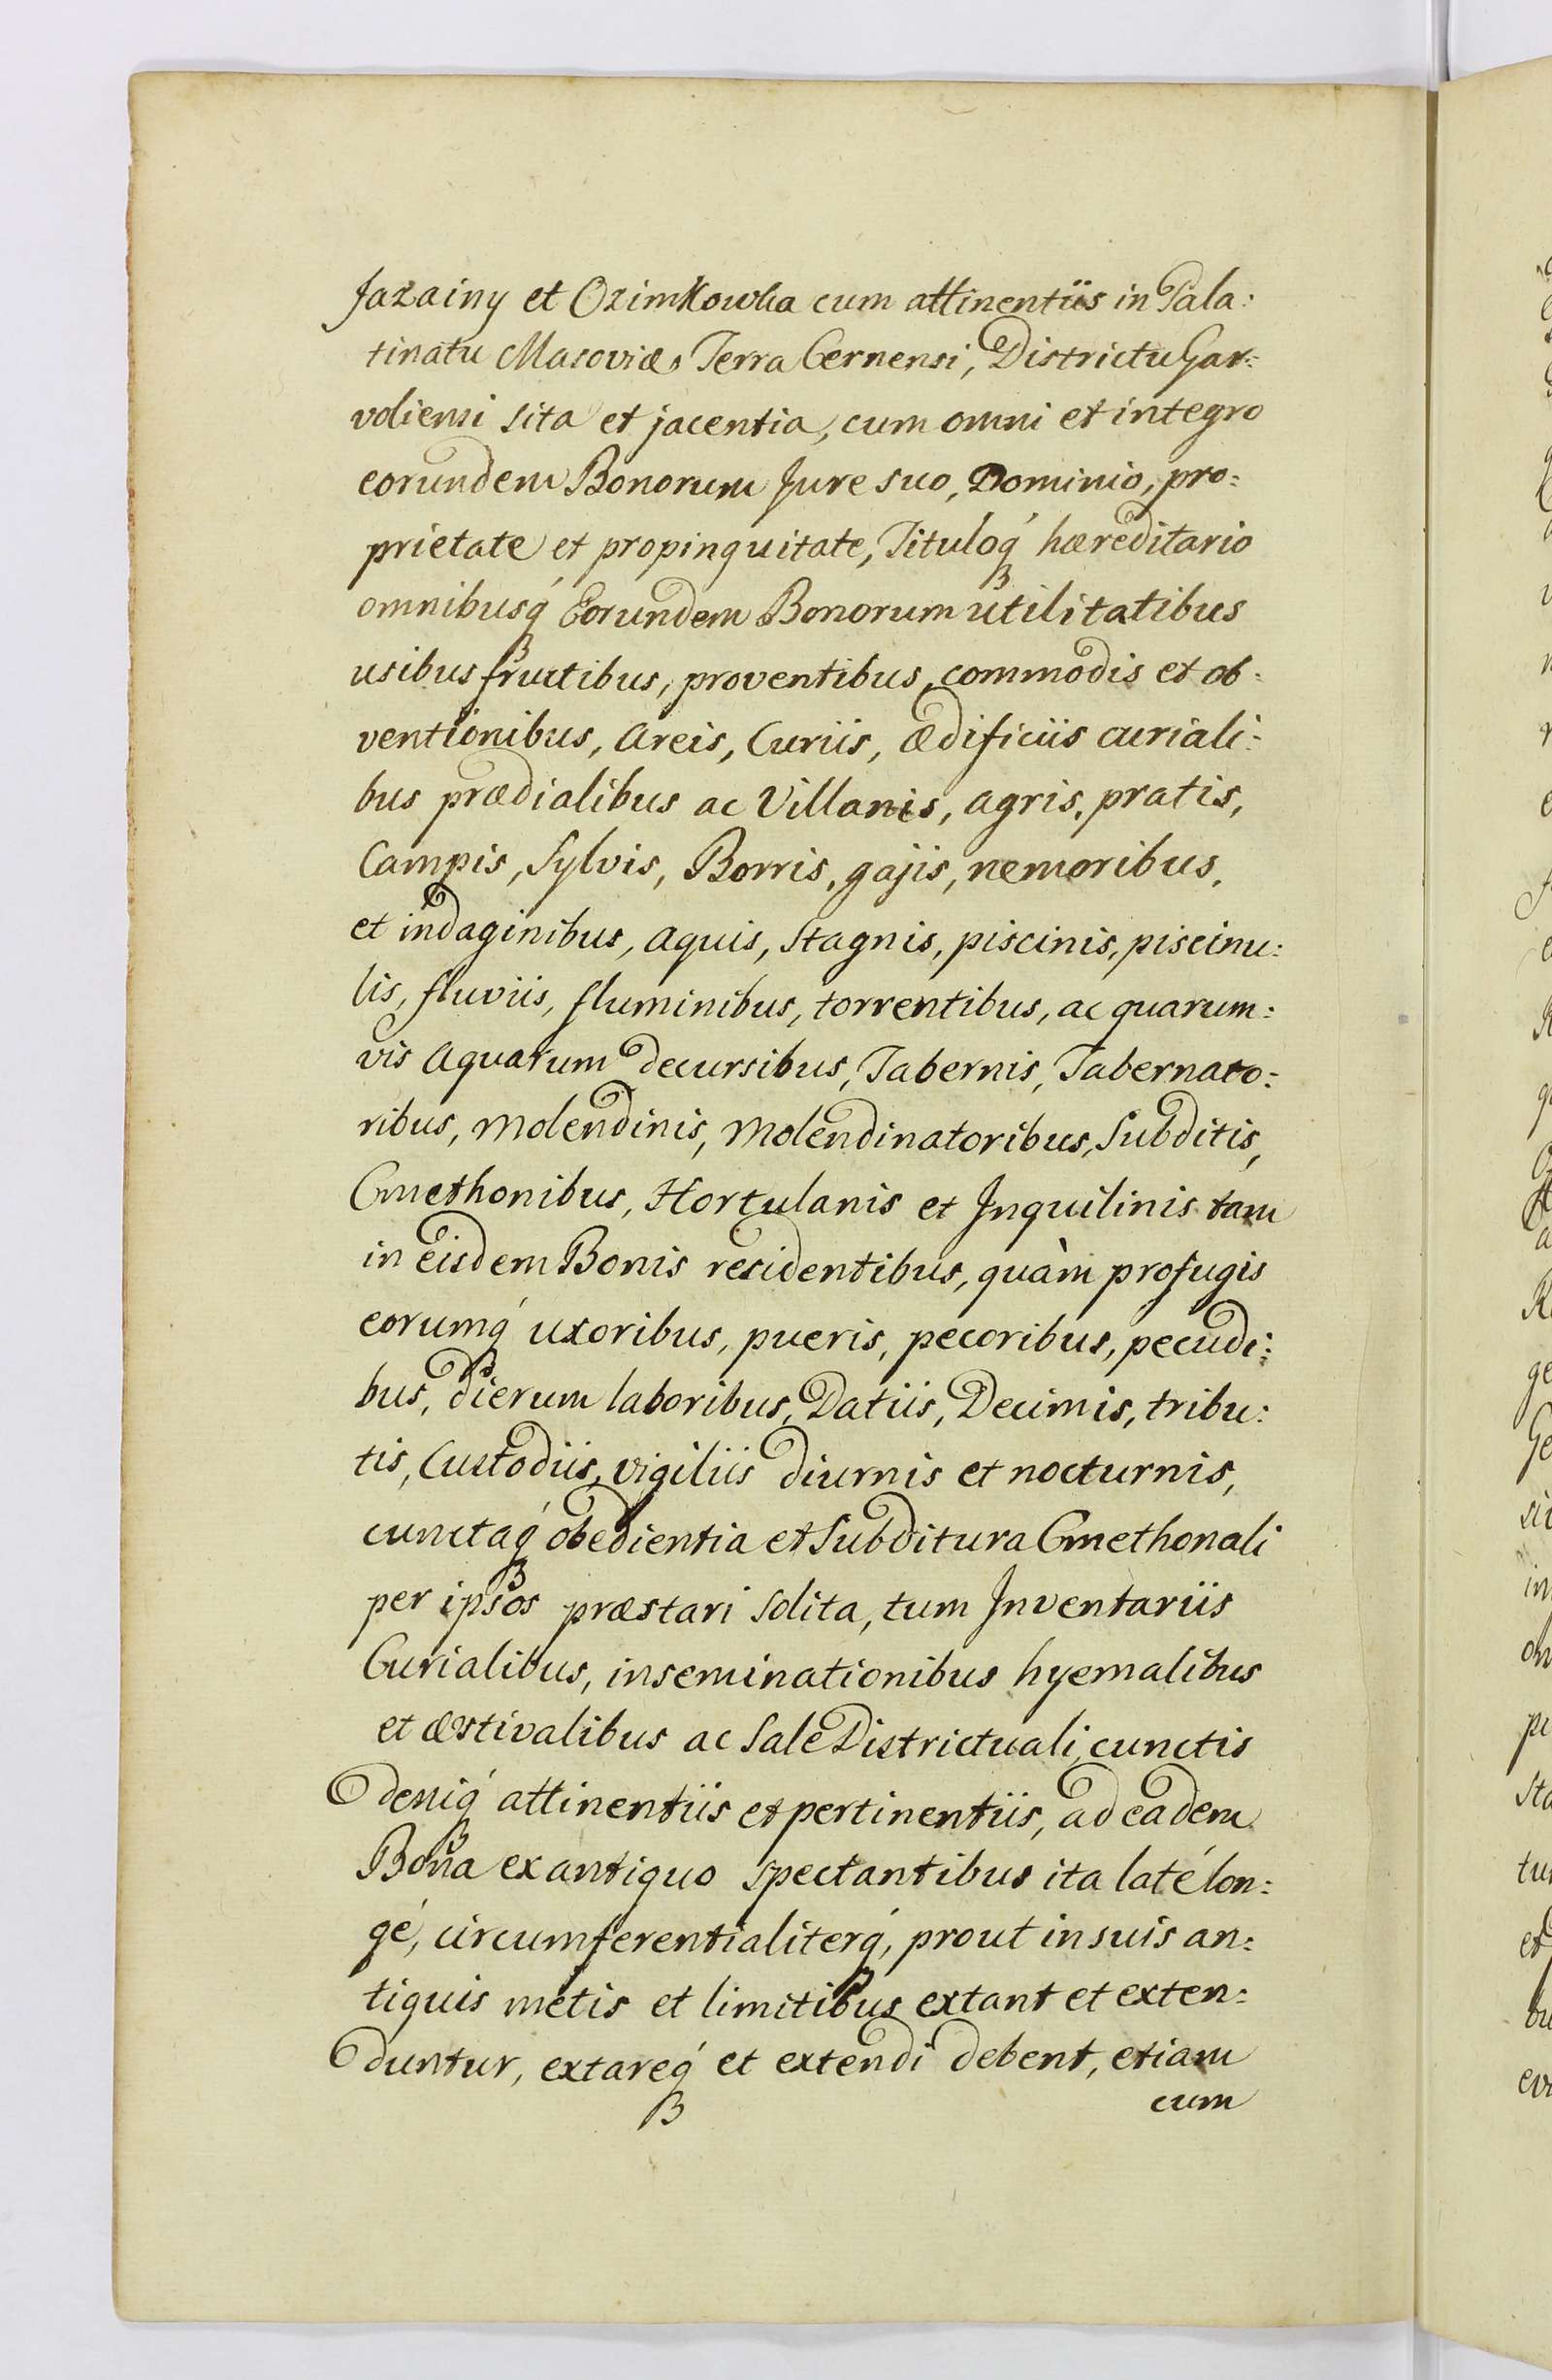 Jazainy et Ozimkowka cum attinentiis in Pala:
tinatu Masoviæ, Terra Cernensi, Districtu Gar:
voliensi sita et jacentia, cum omni et integro
eorundem Bonorum Jure suo, Dominio, pro:
prietate et propinquitate, Tituloq́ hæreditario
omnibusq́ Eorundem Bonorum utilitatibus
usibus fructibus, proventibus, commodis et ob:
ventionibus, Areis, Curiis, Ædificiis curiali:
bus prædialibus ac Villanis, agris, pratis,
Campis, Sylvis, Borris, gajis, nemoribus,
et indaginibus, aquis, Stagnis, piscinis, piscinu:
lis, fluviis, fluminibus, torrentibus, ac quarum:
vis Aquarum decursibus, Tabernis, Tabernato:
ribus, Molendinis, Molendinatoribus, Subditis,
Cmethonibus, Hortulanis et Inquilinis tam
in Eisdem Bonis residentibus, quàm profugis
eorumq́ uxoribus, pueris, pecoribus, pecudi:
bus, dierum laboribus, Datiis, Decimis, tribu:
tis, Custodiis, vigiliis diurnis et nocturnis,
cunctaq́ obedientia et Subditura Cmethonali
per ipsos præstari solita, tum Inventariis
Curialibus, inseminationibus hyemalibus
et æstivalibus ac Sale Districtuali, cunctis
deniq́ attinentiis et pertinentiis, ad eadem
Bona ex antiquo spectantibus ita laté lon:
gé, circumferentialiterq́, prout in suis an:
tiquis metis et limitibus extant et exten:
duntur, extareq́ et extendi debent, etiam
cum